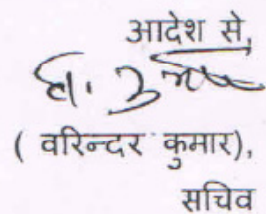 आदेश से,
( वरिन्दर कुमार),
सचिव